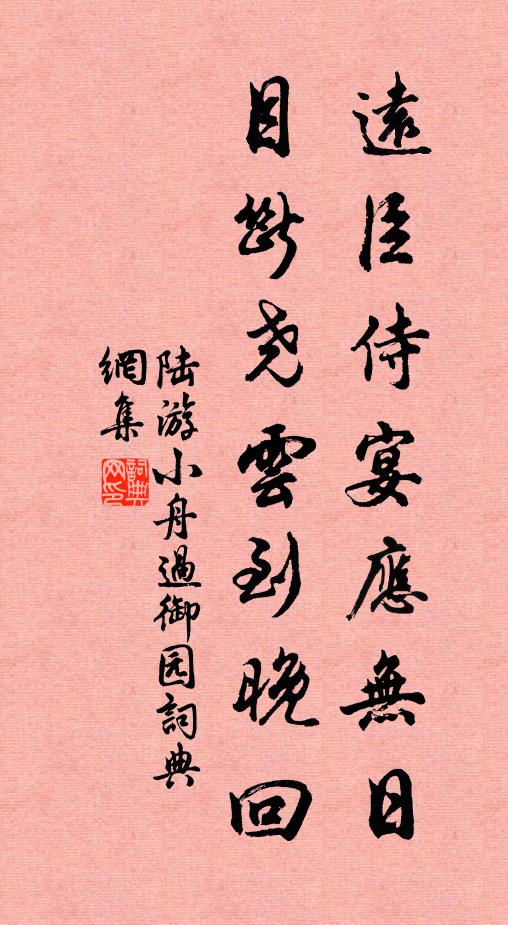 遠臣侍宴應無日
目斷尧雲到晚回
陆游小舟過御园詞典
網集
詞典網印